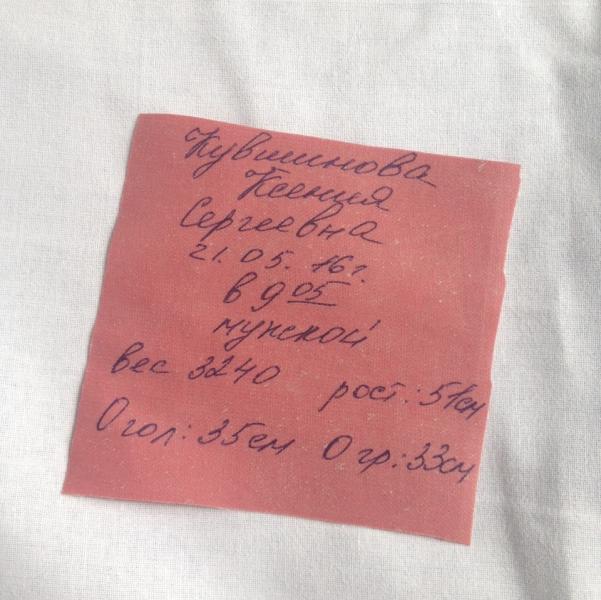 Кувшинова
Ксения
Сергеевна
21.05.16г.
в 9 05
мужской
вес 3240 рост: 51см
О гол: 35см О гр: 33см